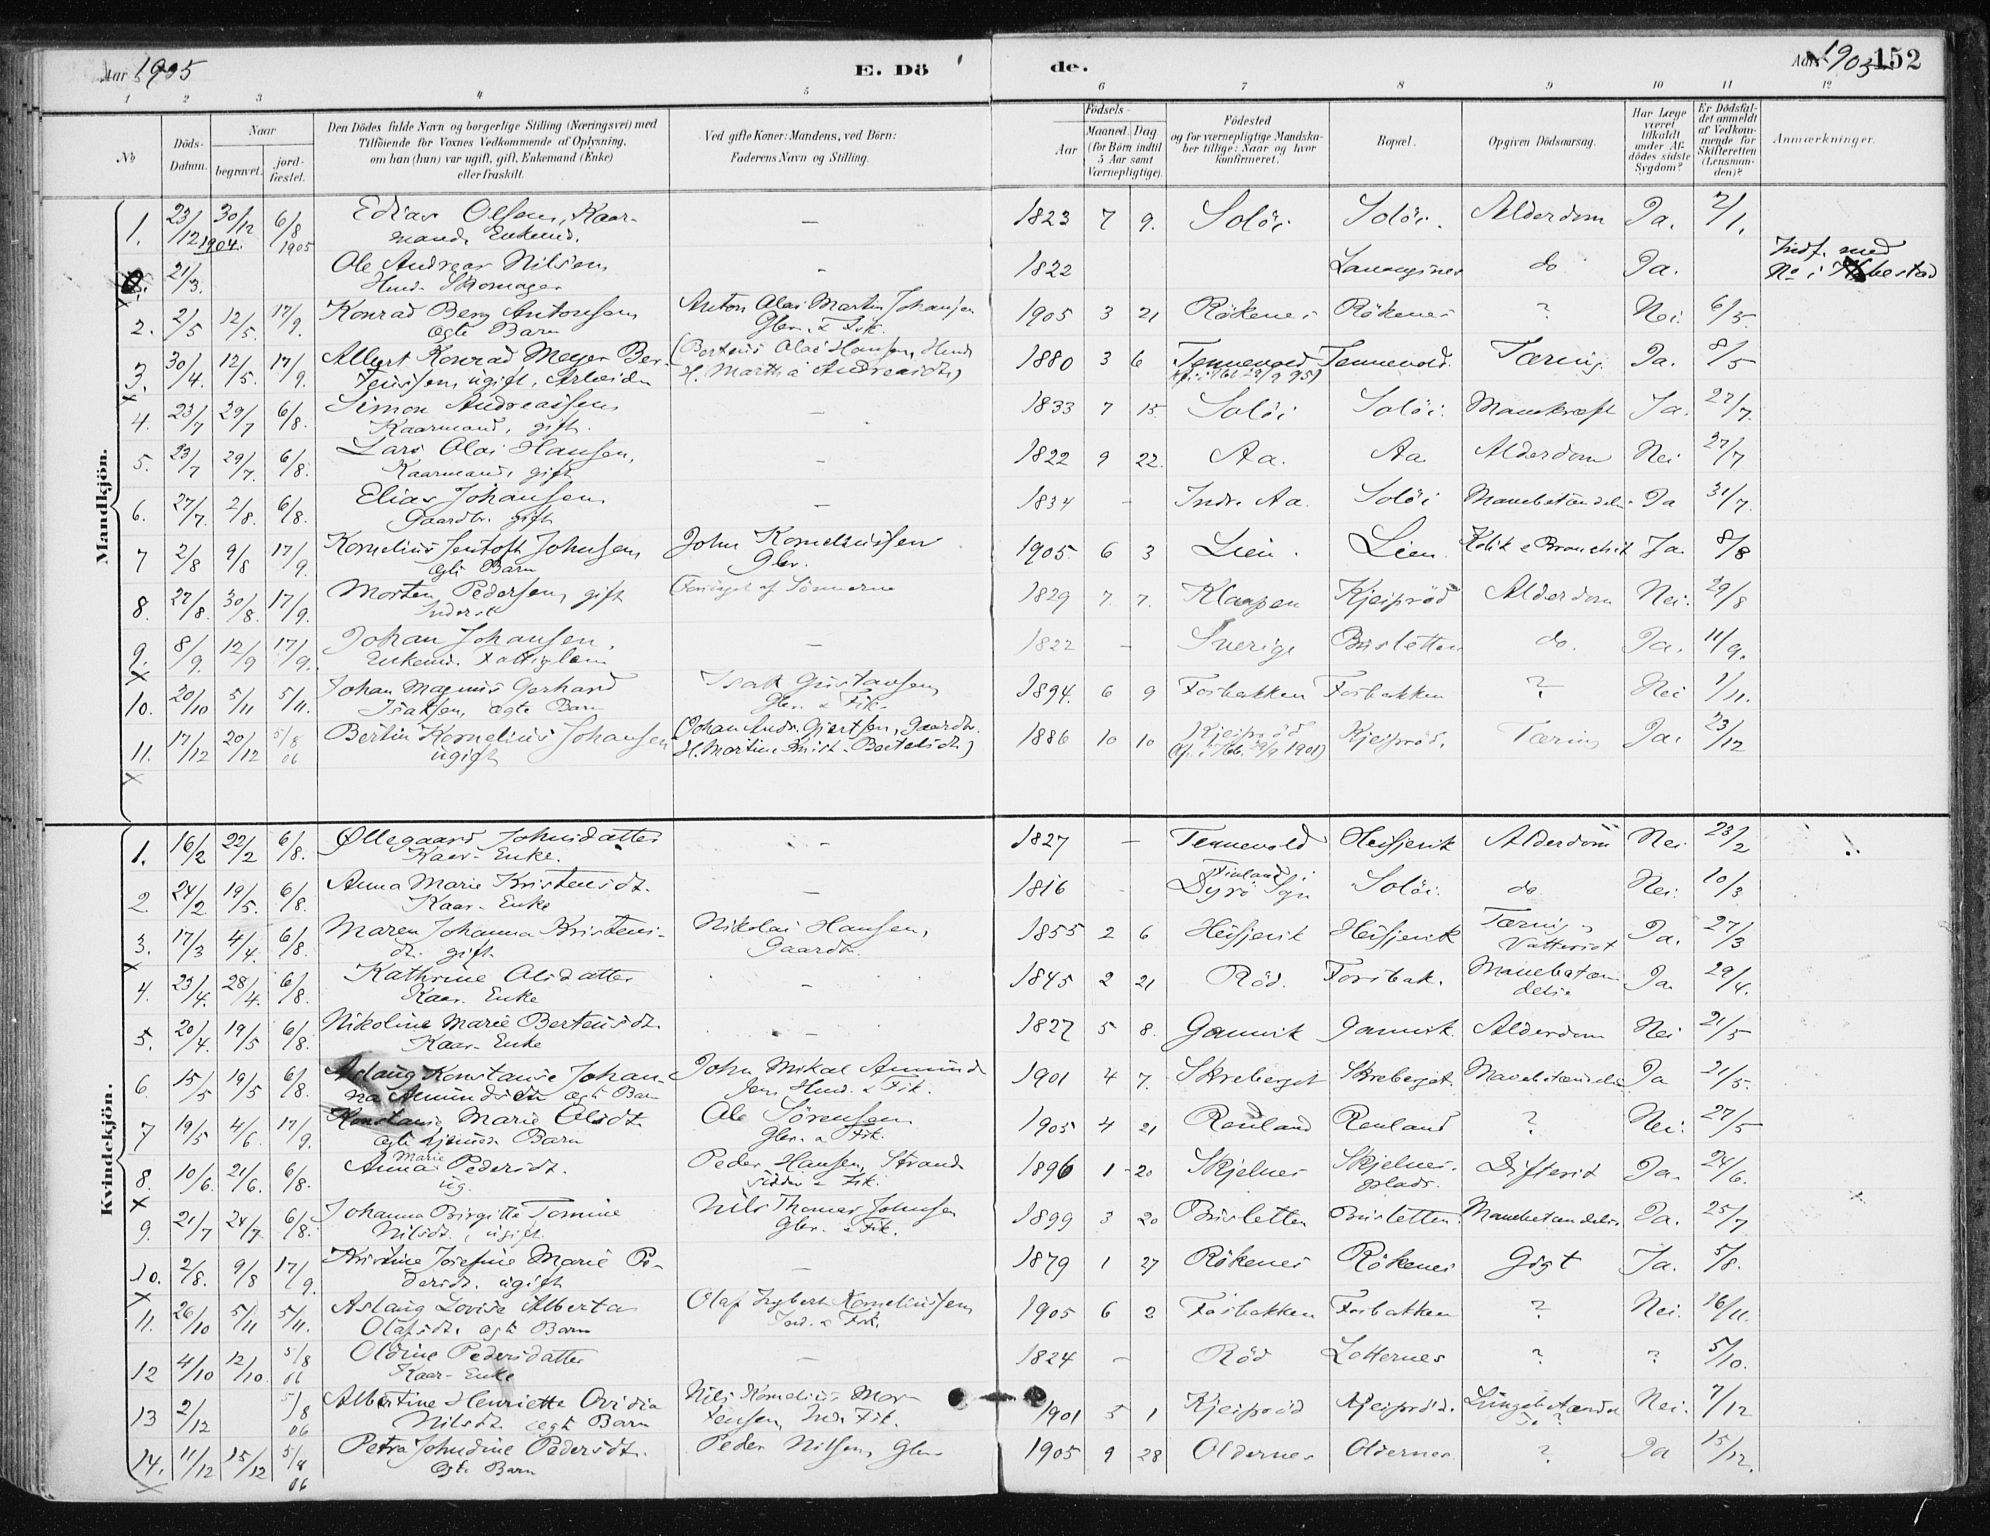 Aar 1905 E. Dö de. Aar 1905 152
1 2 3 4 5 6 7 8 9 10 11 12
No
Döds-Datum.
Naar
begravet.
jord-fæstet.
Den Dödes fulde Navn og borgerlige Stilling (Næringsvei) med
Tilföiende for Voxnes Vedkommende af Oplysning,
om han (hun) var ugift, gift, Enkemand (Enke)
eller fraskilt.
Ved gifte Koner: Mandens, ved Börn:
Faderens Navn og Stilling.
Födsels-
Aar
Maaned. Dag
(for Børn indtil
5 Aar samt
Værnepligtige).
Födested
og for værnepligtige Mandska-
ber tillige: Naar og hvor
konfirmeret.
Bopæl.
Opgiven Dödsaarsag.
Har Læge
været
tilkaldt
under Af-
dødes sidste
Sygdom?
Er Dödsfal-
det anmeldt
af Vedkom-
mende for
Skifteretten
(Lensman-
den)?
Anmærkninger.
Mandkjön.
1. 23/12 1904. 30/12 6/8 1905 Edias Olsen, Kaar- — 1823 7 9. Solöi Solöi. Alderdom Ja. 2/1.
mand, Enkemd.
21/3. Ole Andreas Nilsen — 1822 do Ja. Indf. med
Husm. Skomager No i
2. 2/5 12/5. 17/9. Konrad Berg Antonsen Anton Olai Martin Johansen 1905 3 21 Rökenes Rökenes ? Nei. 6/5.
ægte Barn Gbr. & Fisk.
3. 30/4. 12/5. 17/9. Albert Konrad Meyer Ber- (Berteus Olai Hansen, Husm 1880 3 6 Tennevold Tennevold. Tæring. Ja. 8/5
teussen, ugift, Arbeider H. Martha Andreasdtr)
4. 23/7 29/7 6/8. Simon Andreassen — 1833 7 15 Solöi Solöi. Mavekræft Ja. 27/7.
Kaarmand, gift.
5. 23/7 29/7. 6/8. Lars Olai Hansen, — 1822 9 22. Aa. Aa Alderdom Nei 27/7
Kaarmand, gift
6. 27/7. 2/8. 6/8. Elias Johansen. — 1834 - Indre Aa. Solöi Mavebetændelse Ja 31/7.
Gaardbr. gift
7 2/8 9/8 17/9. Kornelius Jentoft Johnsen John Korneliussen 1905. 6 3 Lien. Lien. Kolik & Bronchit Ja. 8/8
ægte Barn Gbr.
8. 27/8. 30/8. 17/9. Morten Pedersen, gift Forsørget af Sønnerne 1829 7. 7. Klaapen Kjeiprød Alderdom Nei. 29/8
Inderst
9. 8/9. 12/9 17/9. Johan Johansen, — 1822 - Sverige Brusletten do. Ja. 11/9.
Enkemd. Fattiglem
10. 20/10 5/11 5/11. Johan Magnus Gerhard Isak Gustavsen 1894. 6 9 Forbakken Forbakken ? Nei 1/11.
Isaksen, ægte Barn Gbr. & Fisk.
11. 17/12 20/12 5/8 06 Bertin Kornelius Johansen (Johan Andr. Gjertsen, Gaardbr. 1886 10 10 Kjeiprød Kjeiprød. Tæring Ja. 23/12
ugift
Kvindekjön.
1. 16/2 22/2 6/8. Øllegaard Johnsdatter — 1827 — Tennevold Heisjevik Alderdom Nei 23/2
Kaar- Enke.
2. 24/2 19/5. 6/8. Anna Marie Kristensdt. 1816 - Finland i Dyrø Sogn Solöi. do. Nei. 10/3
Kaar- Enke
3. 17/3 4/4. 6/8. Maren Johanna Kristens- Nikolai Hansen, 1855 2 6 Heisjevik Heisjevik Tæring & Ja. 27/3
dt. gift. Gaardbr. Vattersot
4. 23/4. 28/4. 6/8. Kathrine Olsdatter — 1845 2 21 Rød. Forsbak. Mavebetæn Ja. 29/4.
Kaar- Enke delse
5. 20/4. 19/5 6/8. Nikoline Marie Berteusdt. — 1827 5 8. Gamvik Gamvik. Alderdom Nei 21/5
Kaar- Enke
6 15/5 19/5 6/8. Aslaug Konstanse Johan- John Mikal Amund 1901 4 7. Skreberget Skreberget Mavebetændelse Ja 21/5.
na Amundsdtr. ægte Barn sen Husm. & Fisk.
7 19/5 4/6. 17/9. Konstanse Marie Olsdt. Ole Sörensen 1905 4 21 Renland Renland ? Nei. 27/5
ægte hjemmedt. Barn Gbr. & Fisk.
8. 10/6. 21/6. 6/8. Anna Marie Pedersdt. Peder Hansen, Strand 1896 1 20 Skjelnes Skjelnes- Difterit Ja. 24/6.
ug. sidder & Fisk. plads.
9. 21/7 24/7. 6/8. Johanna Birgitte Tomine Nils Thomas Johnsen 1899 3 20 Brusletten Brusletten. Mavebetændelse Ja. 25/7
Nilsdt., ugift. Gbr. & Fisk.
10. 2/8. 9/8 17/9. Kristine Josefine Marie Pe- — 1879 1 27 Rökenes Rökenes Gigt Ja. 5/8.
dersdt. ugift
11. 26/10 5/11 5/11. Aslaug Lovise Alberta Olaf Ingbert Korneliussen 1905 6 2 Forbakken Forbakken ? Nei. 16/11.
Olafsdt. ægte Barn Ind. & Fisk.
12 4/10 12/10. 5/8 06 Oldine Pedersdatter — 1824 — Rød Lotternes ? ? 5/10.
Kaar- Enke
13 2/12 5/8 06 Albertine Henriette Ovidia Nils Kornelius Mor 1901 5 1 Kjeiprød Kjeiprød. Lungebetændel Nei. 7/12
Nilsdt. ægte Barn tensen, Ind. Fisk. se?
14. 11/12 15/12 5/8 06 Petra Johndine Pedersdt. Peder Nilsen, Gbr 1905 9 28 Oldernes Oldernes ? Ja 15/12.
ægte Barn